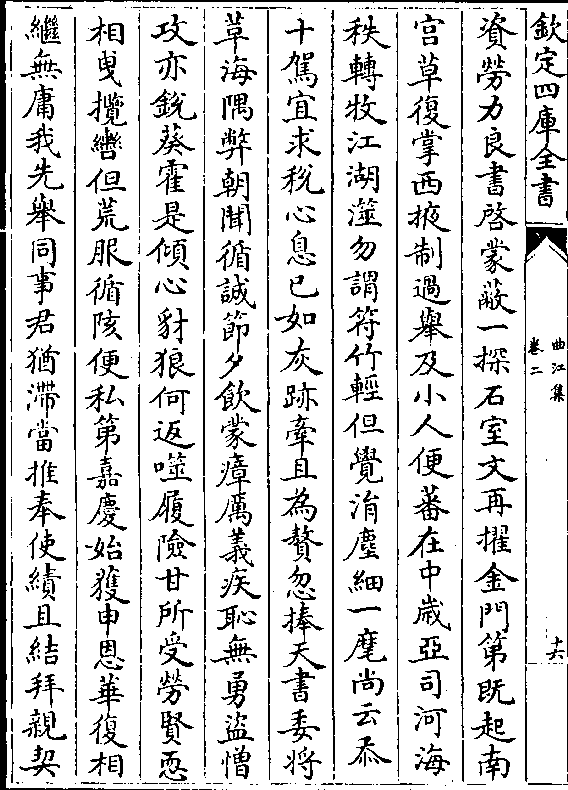 欽定四庫全書
曲江集
卷二
十六
資勞力良書啓蒙蔽一探石室文再擢金門第既起南
宫草復掌西掖制過舉及小人便蕃在中歲亞司河海
秩轉牧江湖澨勿謂符竹輕但覺涓塵細一麾尚云忝
十駕宜求稅心息已如灰跡牽且為贅忽捧天書委將
草海隅弊朝聞循誠節夕飲蒙瘴厲義疾恥無勇盜憎
攻亦銳葵藿是傾心豺狼何返噬履險甘所受勞賢恧
相曳攬轡但荒服循陔便私第嘉慶始獲申恩華復相
繼無庸我先舉同事君猶滯當推奉使績且結拜親契